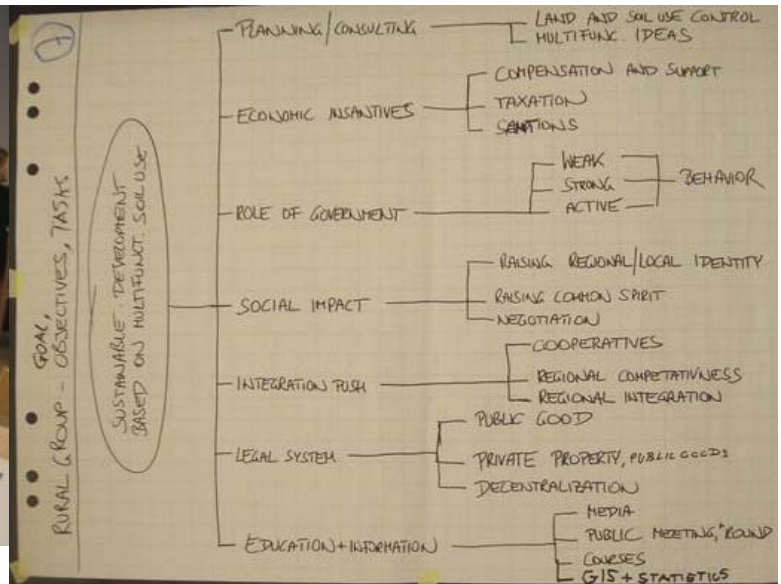 7
RURAL GROUP - GOAL, OBJECTIVES, TASKS
SUSTAINABLE DEVELOPMENT
BASED ON MULTIFUNCT. SOIL USE
PLANNING/CONSULTING
LAND AND SOIL USE CONTROL
MULTIFUNC. IDEAS
ECONOMIC INSANTIVES
COMPENSATION AND SUPPORT
TAXATION
SANTIONS
ROLE OF GOVERNMENT
WEAK
STRONG
ACTIVE
BEHAVIOR
SOCIAL IMPACT
RAISING REGIONAL/LOCAL IDENTITY
RAISING COMMON SPIRIT
NEGOTIATION
INTEGRATION PUSH
COOPERATIVES
REGIONAL COMPETATIVNESS
REGIONAL INTEGRATION
LEGAL SYSTEM
PUBLIC GOOD
PRIVATE PROPERTY, PUBLIC GOODS
DECENTRALIZATION
EDUCATION+INFORMATION
MEDIA
PUBLIC MEETING, "ROUND
COURSES
GIS + STATISTICS